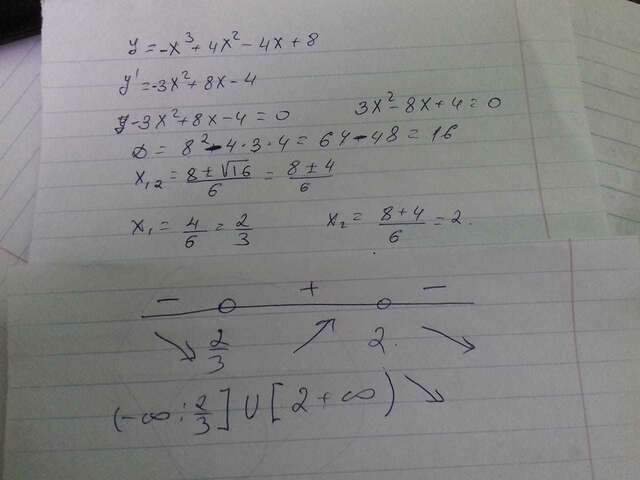 y = -x³ + 4x² - 4x + 8
y' = -3x² + 8x - 4
y -3x² + 8x - 4 = 0    3x² - 8x + 4 = 0
D = 8² - 4·3·4 = 64 - 48 = 16
x₁,₂ = (8 ± √16)/6 = (8 ± 4)/6
x₁ = 4/6 = 2/3    x₂ = (8 + 4)/6 = 2.
−    +    −
↘ 2/3 ↗ 2. ↘
(-∞ ; 2/3] ∪ [2 + ∞) ↘